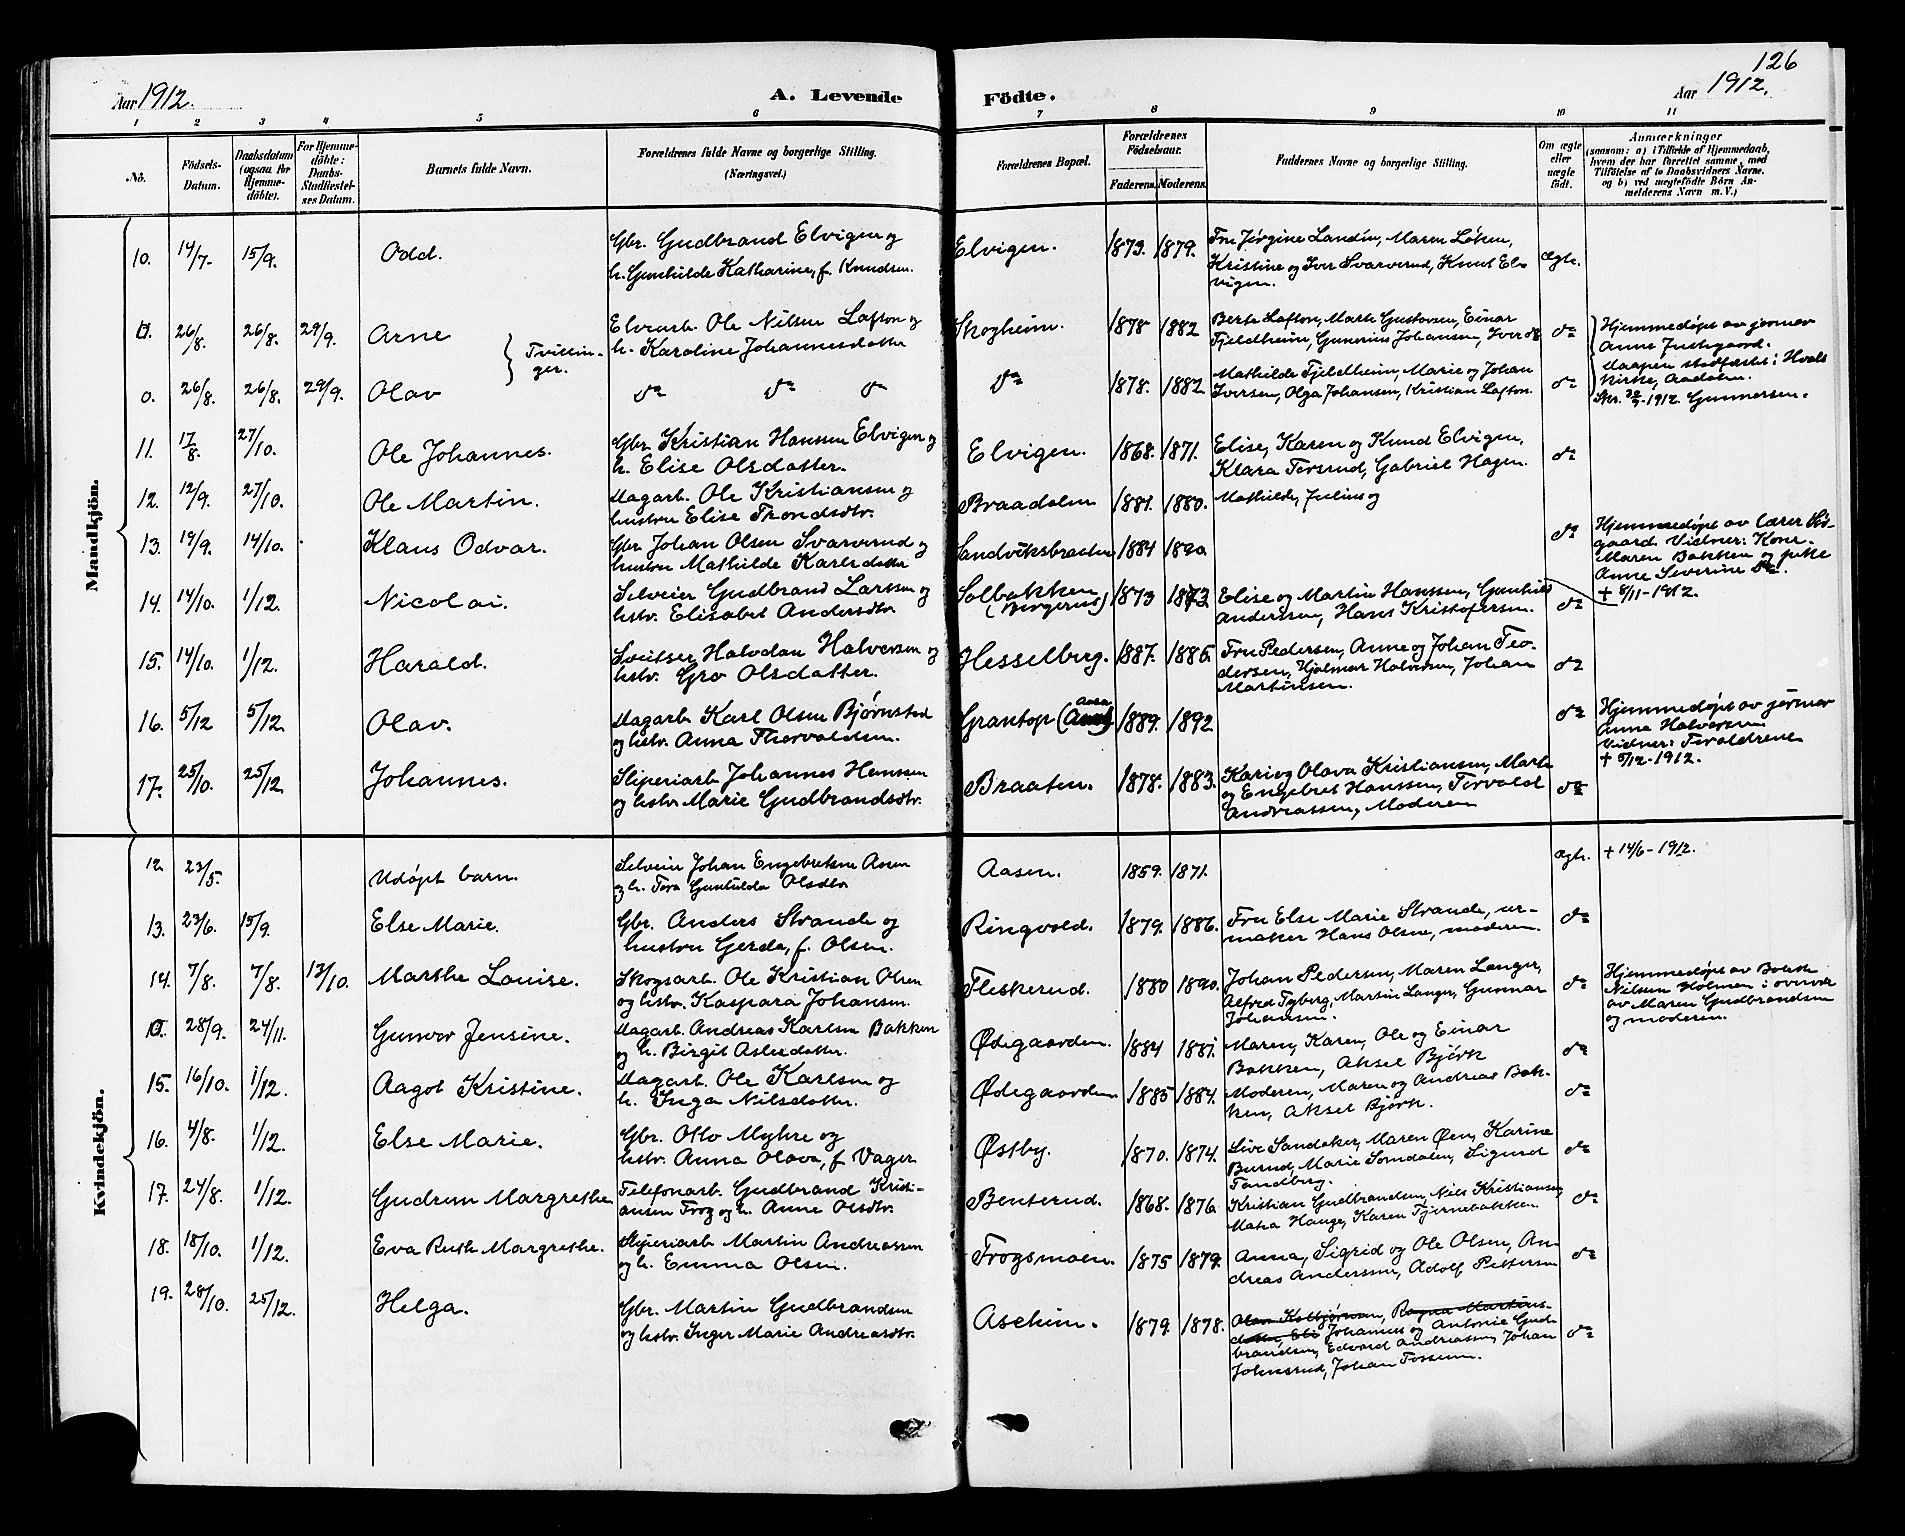 126
Aar 1912.
A. Levende
Födte.
Aar 1912.
1 2 3 4 5 6 7 8 9 10 11
No.
Födsels-
Datum.
Daabsdatum
(ogsaa for
Hjemme-
döbte).
For Hjemme-
döbte:
Daabs-
Stadfæstel-
ses Datum.
Barnets fulde Navn.
Forældrenes fulde Navne og borgerlige Stilling.
(Næringsvei.)
Forældrenes Bopæl.
Forældrenes
Födselsaar.
Faderens. Moderens.
Faddernes Navne og borgerlige Stilling.
Om ægte
eller
uægte
födt.
Anmærkninger
(saasom: a) i Tilfælde af Hjemmedaab,
hvem der har forrettet samme, med
Tilföielse af to Daabsvidners Navne.
og b) ved uægtefödte Börn An-
melderens Navn m. V.)
Mandkjön.
10. 14/7. 15/9. Odd. Gbr. Gudbrand Elvigen og
h. Gunhilde Katharine, f. Knudsen.
Elvigen. 1873. 1879. Fru Jørgine Landin, Maren Løken,
Kristine og Iver Svarverud, Knut El-
vigen.
Ægte.
0. 26/8. 26/8. 29/9. Arne Elvearb. Ole Nilsen Lafton og
h. Karoline Johannesdatter
Tvillin-
ger.
Skogheim. 1878 1882 Berte Lafton, Marte Gustavsen, Einar
Fjeldheim, Gunerius Johansen, Iver do
do
Hjemmedøpt av jormor
Anne Justegaard.
Daapen stadfæstet i Hvals
kirke, Aadalen.
1912. Gunnersen.
0. 26/8. 26/8. 29/9. Olav do do do
do 1878. 1882 Mathilde Fjeldheim, Marie og Johan
Iversen, Olga Johansen, Kristian Lafton.
do
11. 17/8. 27/10. Ole Johannes. Gbr. Kristian Hansen Elvigen og
h. Elise Olsdatter.
Elvigen. 1868. 1871. Elise, Karen og Knud Elvigen,
Klara Tersrud, Gabriel Hagen.
do
12. 12/9. 27/10. Ole Martin. Dagarb. Ole Kristiansen og
hustru Elise Trondsdtr.
Braadalen 1881. 1880. Mathilde, Julius og
13. 19/9. 14/10. Klaus Odvar. Gbr. Johan Olsen Svarverud og
hustru Mathilde Karlsdatter
Sandviksbraaten 1884 1890.
do
Hjemmedøpt av lærer Ød-
gaard. Vidner: Kone
Maren Bakken og pike
Anne Severine do.
14. 14/10. 1/12. Nicolai. Selveier Gudbrand Larsen og
hstr. Elisabet Andersdtr.
Solbakken
1873 1873 Elise og Martin Hanssen, Gunhild
Anderssen, Hans Kristofersen.
do
+ 8/11-1912.
15. 14/10. 1/12. Harald. Sveitser Halvdan Halvorsen og
hstr. Gro Olsdatter.
Hesselberg. 1887. 1885. Fru Pedersen, Anne og Johan Teo-
dersen, Hjalmar Halvorsen, Johan
Martinsen.
do
16. 5/12 5/12. Olav. Dagarb Karl Olsen Bjørnstad
og hstr. Anna Thorvaldsen.
Grantop (Aasa) 1889. 1892.
do
Hjemmedøpt av jormor
Anna Halvorsen
Vidner: Foraldrene
+ 5/12-1912.
17. 25/10. 25/12. Johannes. Sliperiarb Johannes Hanssen
og hstr Marie Gudbrandsdtr.
Braaten. 1878. 1883. Kari og Olava Kristiansen, Marte
og Engebret Hanssen, Torvald
Andreassen, Moderen
do
Kvindekjön.
12. 23/5. Udøpt barn. Selveier Johan Engebretsen Aasen
og h. Tora Gunhilda Olsdtr
Aasen. 1859. 1871.
Ægte. + 14/6-1912.
13. 23/6. 15/9. Else Marie. Gbr. Anders Strande og
hustru Gerda, f. Olsen.
Ringvold. 1879. 1886. Fru Else Marie Strande, ur-
maker Hans Olsen, moderen
do
14. 7/8. 7/8. 13/10. Marthe Louise. Skogsarb. Ole Kristian Olsen
og hstr. Kaspara Johansen.
Fleskerud. 1880 1890. Johan Pedersen, Maren Langer,
Alfred Fyberg, Martin Langer, Gunnar
Johansen.
do
Hjemmedøpt av Bolette
Nilsen Holmen i overvær
av Maren Gudbrandsen
og moderen.
0. 28/9. 24/11. Gunvor Jensine. Dagarb. Andreas Karlsen Bakken
og h. Birgit Aslesdatter.
Ødegaarden. 1884 1881. Maren, Karen, Ole og Einar
Bakken, Aksel Bjørk
do
15. 16/10. 1/12. Aagot Kristine. Dagarb. Ole Karlsen og
h. Inga Nilsdatter.
Ødegaarden. 1885 1884. Moderen, Maren og Andreas Bak-
ken, Aksel Bjørk.
do
16. 4/8. 1/12. Else Marie. Gbr. Otto Myhre og
hstr. Anna Olava, f. Vager
Østby. 1870. 1874. Live Sandaker, Maren Øen, Karine
Burud, Marie Somdalen, Sigurd
Tandberg.
do
17. 24/8. 1/12. Gudrun Margrethe Telefonarb. Gudbrand Kristi-
ansen Frog og h. Anne Olsdtr.
Benterud. 1868. 1876. Kristian Gudbrandsen, Nils Kristiansen,
Matea Hauge, Karen Tjernebakken
do
18. 18/10. 1/12. Eva Ruth Margrethe. Sliperiarb Martin Andreassen
og h. Emma Olsen.
Frogsmoen. 1875 1879. Anna, Sigrid og Ole Olsen, An-
dreas Anderssen, Adolf Pettersen
do
19. 28/10. 25/12. Helga. Gbr. Martin Gudbrandsen
og hstr. Inger Marie Andreasdtr.
Aschim. 1879. 1878. Olav Kolbjørnsen, Ragna Martins-
datter, Eli Johannes og Antonie Gud-
brandsen, Edvard Andreassen, Johan
Johnsrud, Johan Fossum.
do